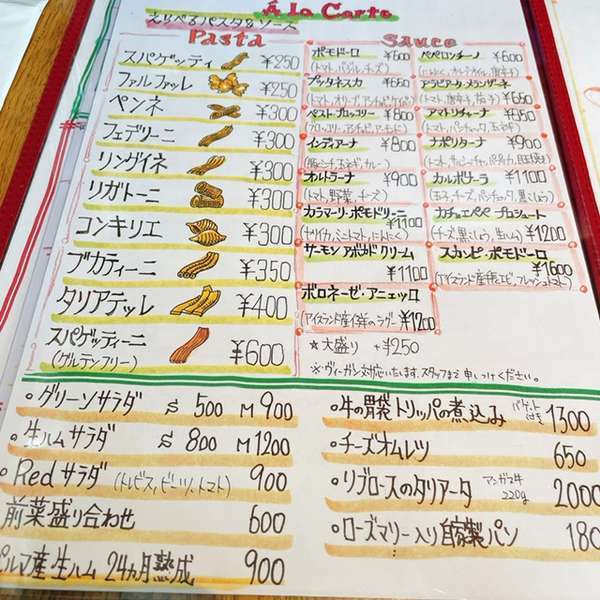 À la Carte
えらべるパスタ&ソース
Pasta
スパゲッティ ¥250
ファルファッレ ¥250
ペンネ ¥300
フェデリーニ ¥300
リングイネ ¥300
リガトーニ ¥300
コンキリエ ¥300
ブカティーニ ¥350
タリアテッレ ¥400
スパゲッティーニ ¥600
(グルテンフリー)
Sauce
ポモドーロ ¥600
(トマト、バジル、チーズ)
プッタネスカ ¥650
(トマト、オリーブ、アンチョビ、ケイパー)
ペスト・ブロッコリー ¥800
(ブロッコリー、アンチョビ、アーモンド)
インディアーナ ¥800
(豚ミンチ、玉ネギ、カレー)
オルトラーナ ¥900
(トマト、野菜、チーズ)
カラマーリ・ポモドリーニ ¥1100
(ヤリイカ、ミニトマト、にんにく)
サーモンアボカドクリーム ¥1100
ボロネーゼ・アニェッロ
(アイスランド産仔羊のラグー) ¥1200
ペペロンチーノ ¥600
(にんにく、オリーブオイル、唐辛子)
アラビアータ・メランザーネ
(トマト、唐辛子、茄子) ¥650
アマトリチャーナ ¥850
(トマト、パンチェッタ、玉ネギ)
ナポリターナ ¥900
カルボナーラ ¥1100
(玉子、チーズ、パンチェッタ、黒こしょう)
カチョエペペ プロシュート
(チーズ、黒こしょう、生ハム) ¥1200
スカンピ・ポモドーロ ¥1600
(アイスランド産手長エビ、フレッシュトマト)
★大盛り +¥250
※ヴィーガン対応いたします。スタッフまで申しつけください。
・グリーンサラダ S 500 M 900
・生ハムサラダ S 800 M 1200
・Redサラダ (トレビス、ビーツ、トマト) 900
前菜盛り合わせ 600
パルマ産生ハム 24カ月熟成 900
・牛の胃袋トリッパの煮込み バゲット付き 1300
・チーズオムレツ 650
・リブロースのタリアータ アンガス牛 220g 2000
・ローズマリー入り自家製パン 180